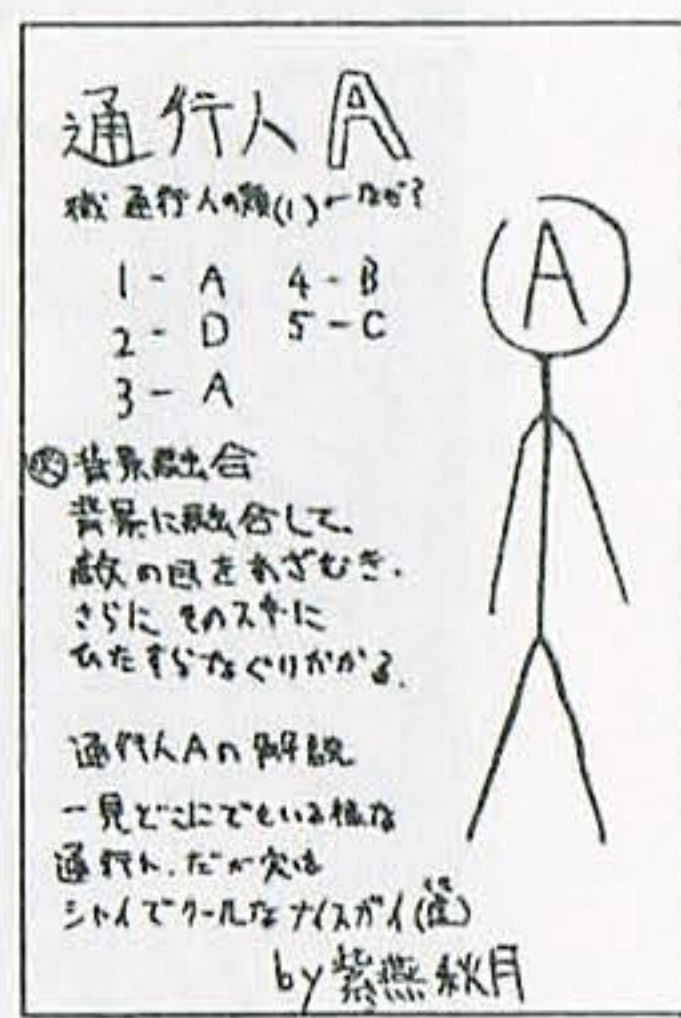 通行人A
職 通行人の類(1)←なぜ?
1-A 4-B
2-D 5-C
3-A
背景融合
背景に融合して、
敵の目をあざむき、
さらに そのスキに
ひたすらなぐりかかる。
通行人Aの解説
一見どこにでもいる様な
通行人、だが実は
シャイでクールなナイスガイ
by 紫燕秋月
A